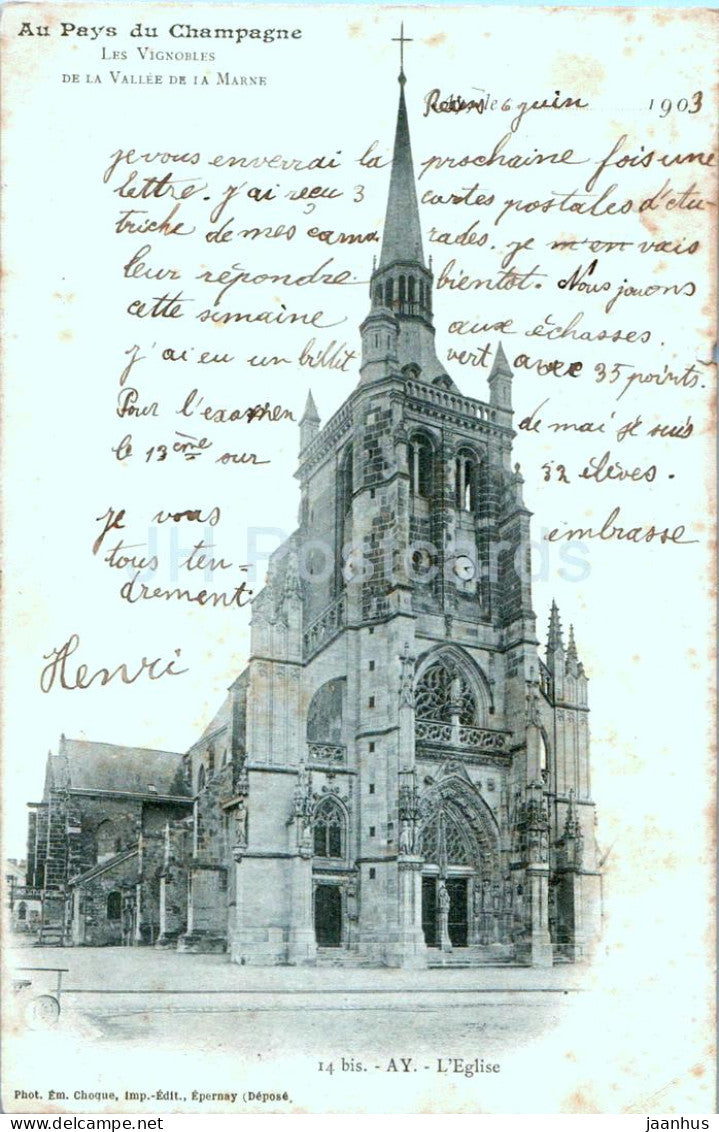 Au Pays du Champagne
Les Vignobles
de la Vallée de la Marne
Reims le 6 juin 1903
je vous enverrai la prochaine fois une
lettre. j'ai reçu 3 cartes postales d'Au-
triche de mes cama rades. je m'en vais
leur répondre bientot. Nous jouons
cette semaine aux échasses.
j'ai eu un billit vert avec 35 points.
Pour l'examen de mai je suis
le 13ème sur 32 élèves.
je vous embrasse
tous ten=
drement
Henri
JH Postcards
14 bis. - AY. - L'Eglise
Phot. Ém. Choque, Imp.-Édit., Épernay (Déposé,
jaanhus